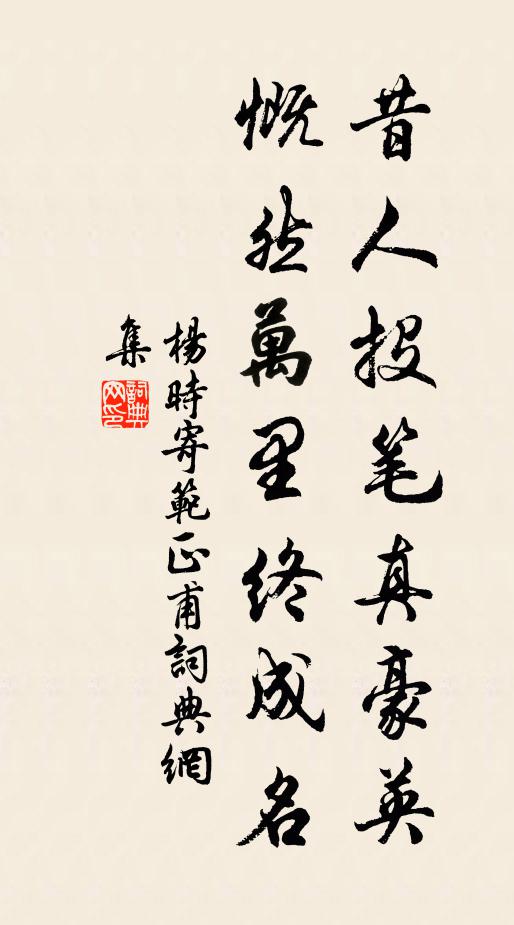 昔人投笔真豪英
慨然萬里終成名
楊時寄範正甫詞典網
集
詞典
网印